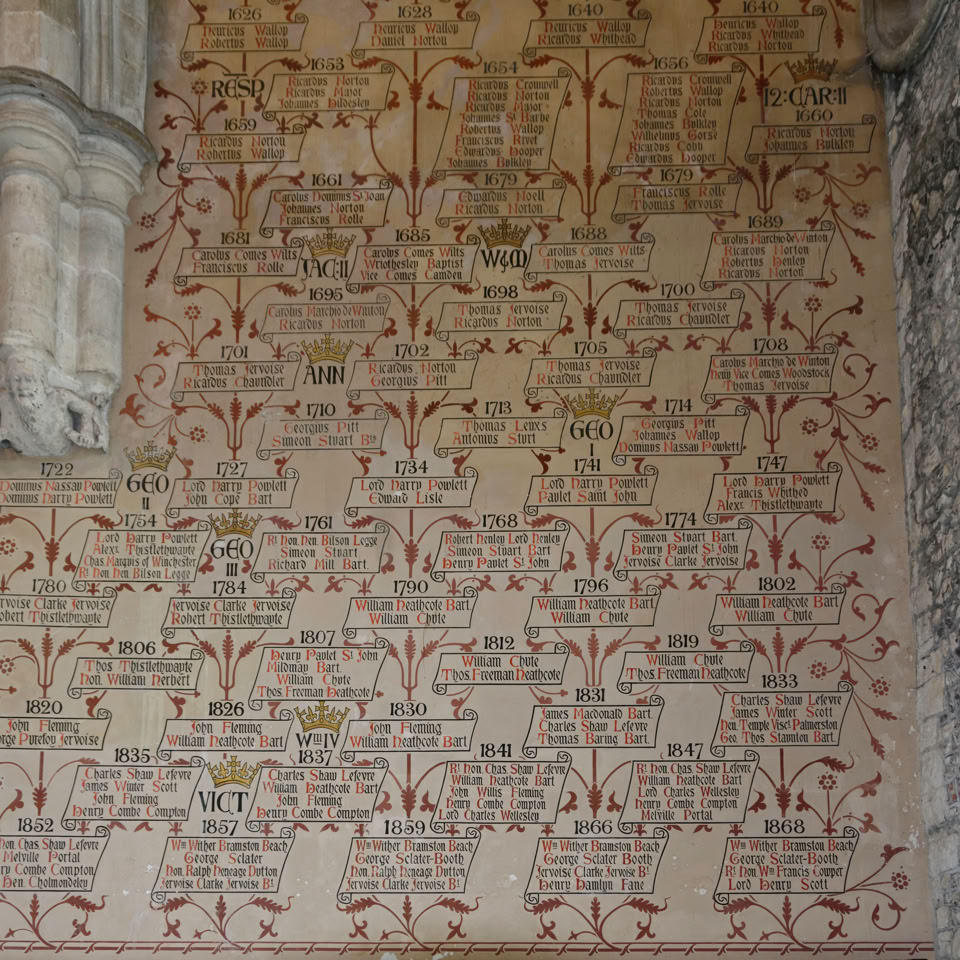 1626
Henricus Wallop
Robertus Wallop
1628
Henricus Wallop
Daniel Norton
1640
Henricus Wallop
Ricardus Whithead
1640
Henricus Wallop
Ricardus Whithead
Ricardus Norton
RESP
1653
Ricardus Norton
Ricardus Major
Johannes Hildesley
1654
Ricardus Cromwell
Ricardus Norton
Ricardus Major
Johannes St Barbe
Robertus Wallop
Franciscus Rivet
Edwardus Hooper
Johannes Bulkley
1656
Ricardus Cromwell
Robertus Wallop
Ricardus Norton
Thomas Cole
Johannes Bulkley
Wilhelmus Gorse
Ricardus Cobb
Edwardus Hooper
12:CAR:II
1660
Ricardus Norton
Johannes Bulkley
1659
Ricardus Norton
Robertus Wallop
1661
Carolus Dominus St Joan
Johannes Norton
Franciscus Rolle
1679
Edwardus Noell
Ricardus Norton
1679
Franciscus Rolle
Thomas Jervoise
1681
Carolus Comes Wilts
Franciscus Rolle
JAC:II
1685
Carolus Comes Wilts
Wriothesley Baptist
Vice Comes Camden
W&M
1688
Carolus Comes Wilts
Thomas Jervoise
1689
Carolus Marchio de Winton
Ricardus Norton
Robertus Henley
Ricardus Norton
1695
Carolus Marchio de Winton
Ricardus Norton
1698
Thomas Jervoise
Ricardus Norton
1700
Thomas Jervoise
Ricardus Chaundler
1701
Thomas Jervoise
Ricardus Chaundler
ANN
1702
Ricardus Norton
Georgius Pitt
1705
Thomas Jervoise
Ricardus Chaundler
1708
Carolus Marchio de Winton
Henry Vice Comes Woodstock
Thomas Jervoise
1710
Georgius Pitt
Simeon Stuart Bts
1713
Thomas Lewxs
Antonius Sturt
GEO
I
1714
Georgius Pitt
Johannes Wallop
Dominus Nassau Powlett
1722
Dominus Nassau Powlett
Dominus Harry Powlett
GEO
II
1727
Lord Harry Powlett
John Cope Bart
1734
Lord Harry Powlett
Edward Lisle
1741
Lord Harry Powlett
Pavlet Saint John
1747
Lord Harry Powlett
Francis Whithed
Alexr Thistlethwayte
1754
Lord Harry Powlett
Alexr Thistlethwayte
Chas Marquis of Winchester
Rt Hon Hen Bilson Legge
GEO
III
1761
Rt Hon Hen. Bilson Legge
Simeon Stuart
Richard Mill Bart.
1768
Robert Henley Lord Henley
Simeon Stuart Bart
Henry Pavlet St John
1774
Simeon Stuart Bart:
Henry Pavlet St John
Jervoise Clarke Jervoise
1780
ervoise Clarke Jervoise
obert Thistlethwayte
1784
Jervoise Clarke Jervoise
Robert Thistlethwayte
1790
William Heathcote Bart
William Chute
1796
William Heathcote Bart
William Chute
1802
William Heathcote Bart
William Chute
1806
Thos Thistlethwayte
Hon. William Herbert
1807
Henry Pavlet St John
Mildmay Bart.
William Chute
Thos. Freeman Heathcote
1812
William Chute
Thos. Freeman Heathcote
1819
William Chute
Thos. Freeman Heathcote
1820
John Fleming
orge Purefoy Jervoise
1826
John Fleming
William Heathcote Bart
Wm IV
1830
John Fleming
William Heathcote Bart
1831
James Macdonald Bart.
Charles Shaw Lefevre
Thomas Baring Bart.
1833
Charles Shaw Lefevre
James Winter Scott
Hon. Temple Visct. Palmerston
Geo. Thos Staunton Bart.
1835
Charles Shaw Lefevre
James Winter Scott
John Fleming
Henry Combe Compton
VICT
1837
Charles Shaw Lefevre
William Heathcote Bart
John Fleming
Henry Combe Compton
1841
Rt Hon. Chas. Shaw Lefevre
William Heathcote Bart
John Willis Fleming
Henry Combe Compton
Lord Charles Wellesley
1847
Rt Hon. Chas. Shaw Lefevre
William Heathcote Bart
Lord Charles Wellesley
Henry Combe Compton
Melville Portal
1852
Hon. Chas. Shaw Lefevre
Melville Portal
ry Combe Compton
Hen. Cholmondeley
1857
Wm Wither Bramston Beach
George Sclater
Hon. Ralph Heneage Dutton
Jervoise Clarke Jervoise Bt
1859
Wm Wither Bramston Beach
George Sclater-Booth
Hon. Ralph Heneage Dutton
Jervoise Clarke Jervoise Bt
1866
Wm Wither Bramston Beach
George Sclater Booth
Jervoise Clarke Jervoise Bt
Henry Hamlyn Fane
1868
Wm Wither Bramston Beach
George Sclater-Booth
Rt Hon Wm Francis Cowper
Lord Henry Scott